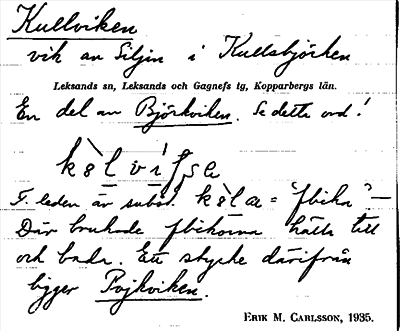 Kullviken
vik av Siljan i Kullsbjörken
Leksands sn, Leksands och Gagnefs tg, Kopparbergs län.
En del av Björkviken. Se detta ord!
F. leden är subst. = "flicka" –
Där brukade flickorna hålla till
och bada. Ett stycke därifrån
ligger Pojkviken.
ERIK M. CARLSSON, 1935.